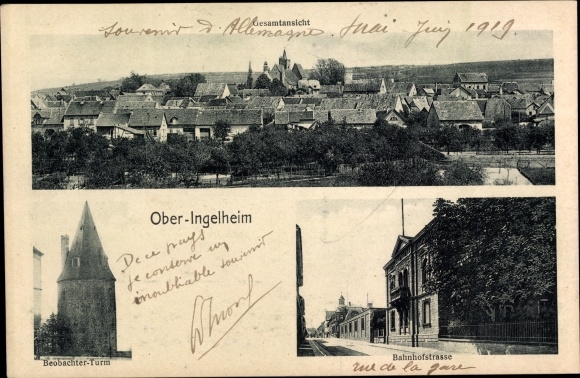 Gesamtansicht
Souvenir d'Allemagne. Mai Juin 1919.
Ober-Ingelheim
De ce pays
je conserve un
inoubliable souvenir
Beobachter-Turm
Bahnhofstrasse
rue de la gare